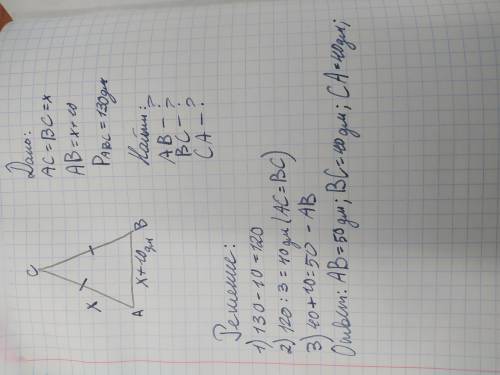 Дано:
AC=BC=x
AB=x+10
PABC=130дм
Найти:
AB-?
BC-?
CA-?
C
x
A
B
x+10дм
Решение:
1) 130-10=120
2) 120:3=40дм (AC=BC)
3) 40+10=50-AB
Ответ: AB=50дм; BC=40дм; CA=40дм;